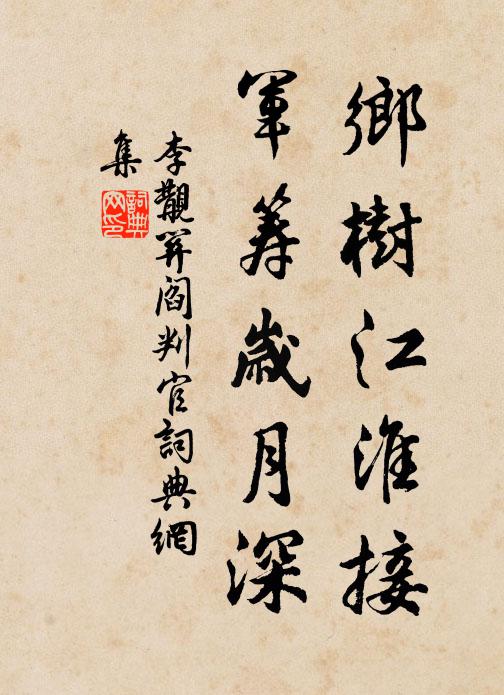 鄉樹江淮接
軍籌歲月深
李觀羿閻判官詞典網
集
詞典
网印